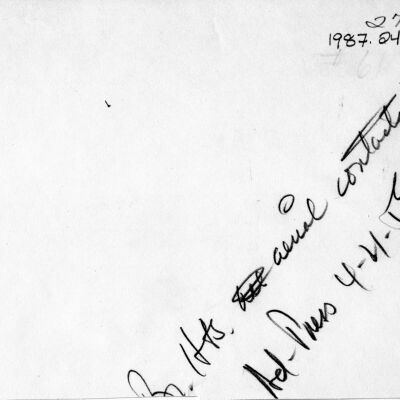 27
1987.04
Br. Hts. aerial contact
Ad-Press 4-21-